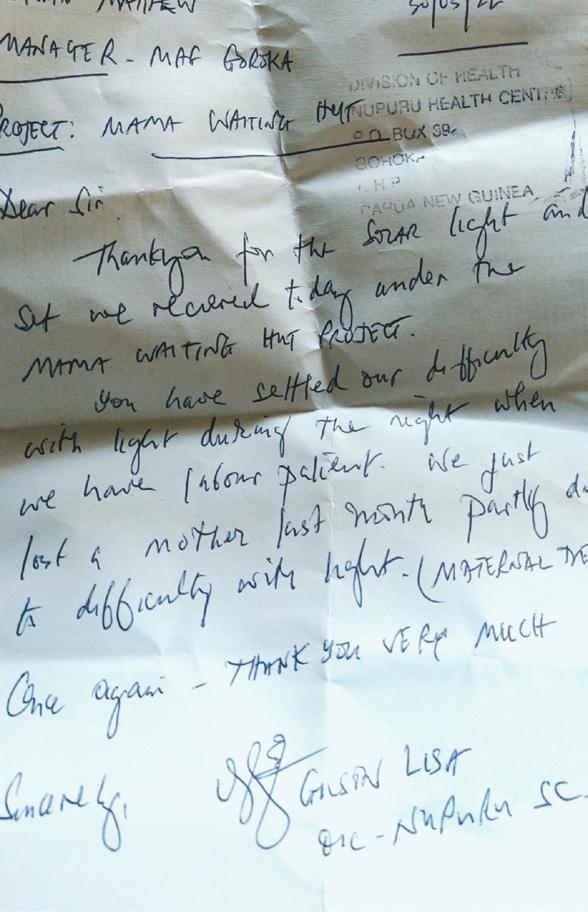 MATTHEW 30/05/22
MANAGER - MAF GOROKA
DIVISION OF HEALTH
NUPURU HEALTH CENTRE
BOX 39
GOROKA
E H P
PAPUA NEW GUINEA
PROJECT: MAMA WAITING HUT
Dear Sir.
Thankyou for the SOLAR light and
Set we received today under the
MAMA WAITING HUT PROJECT.
You have settled our difficulty
with light during the night when
we have labour patient. We just
lost a mother last month partly du
to difficulty with light. (MATERNAL DE
Once again - THANK YOU VERY MUCH
Sincerely,
GILSON LISA
OIC - NUPURU SC.